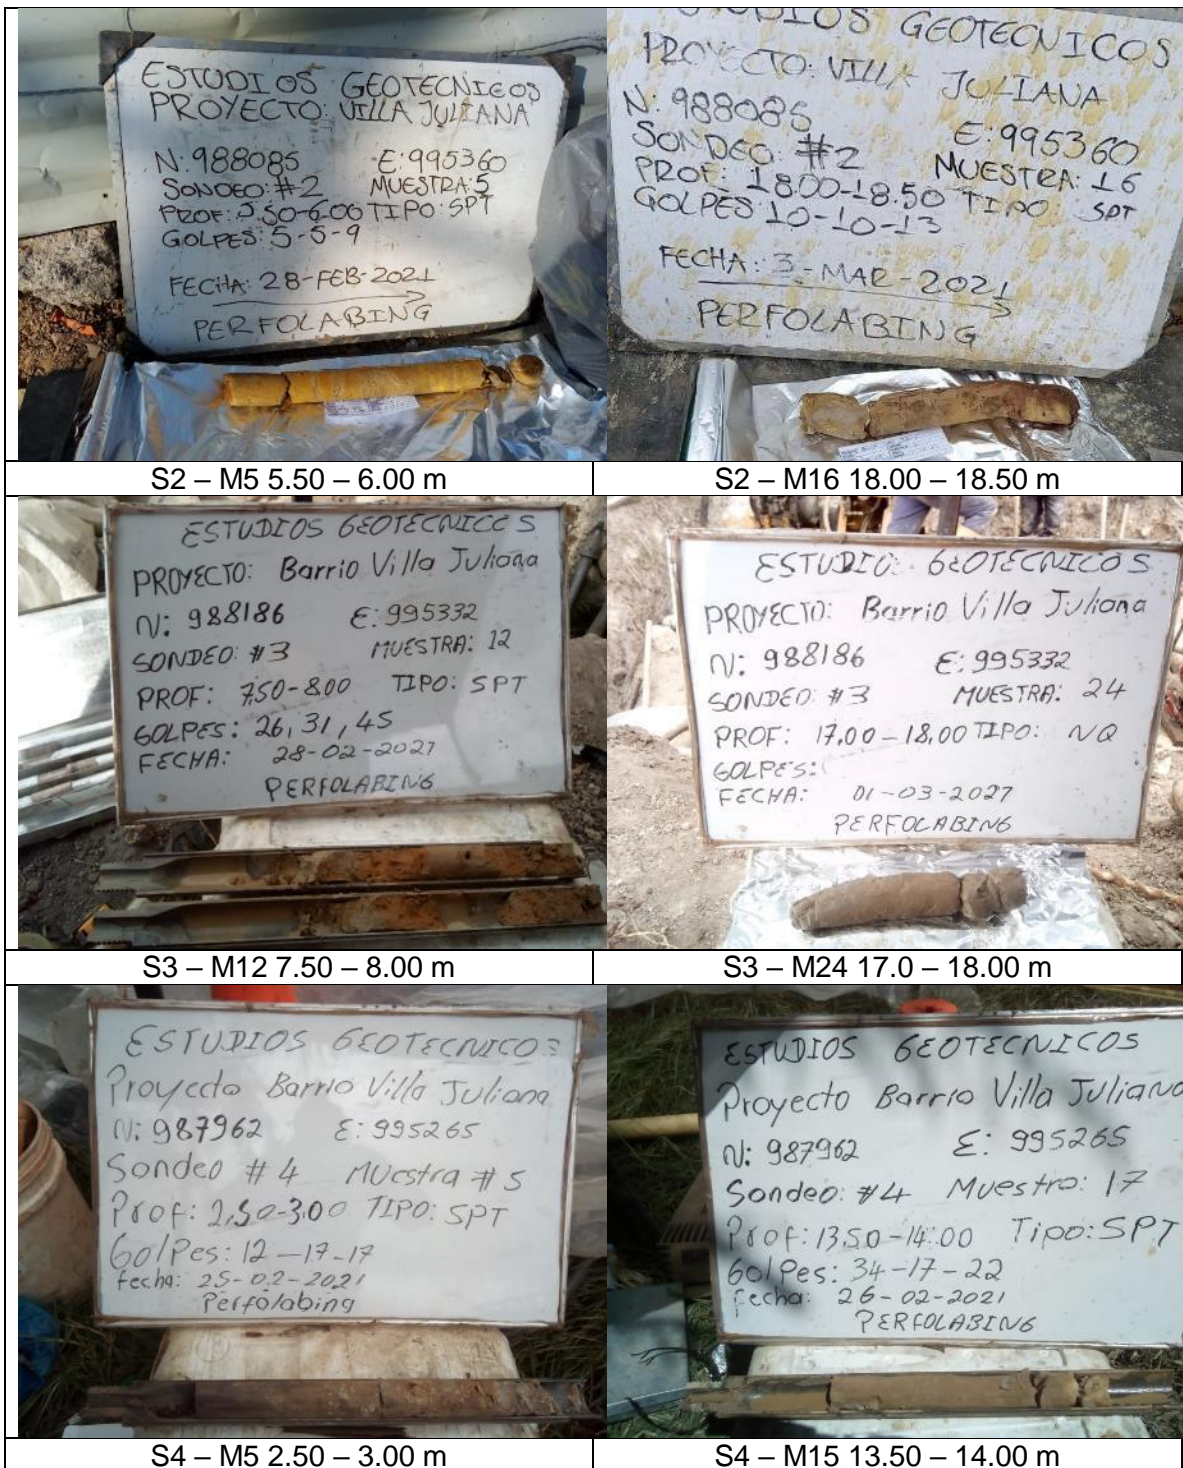 ESTUDIOS GEOTECNICOS
PROYECTO: VILLA JULIANA
N: 988085 E: 995360
SONDEO: #2 MUESTRA: 5
PROF: 5.50-6.00 TIPO: SPT
GOLPES: 5-5-9
FECHA: 28-FEB-2021
PERFOLABING
ESTUDIOS GEOTECNICOS
PROYECTO: VILLA JULIANA
N: 988085 E: 995360
SONDEO: #2 MUESTRA: 16
PROF: 18.00-18.50 TIPO: SPT
GOLPES: 10-10-13
FECHA: 3-MAR-2021
PERFOLABING
S2 – M5 5.50 – 6.00 m
S2 – M16 18.00 – 18.50 m
ESTUDIOS GEOTECNICOS
PROYECTO: Barrio Villa Juliana
N: 988186 E: 995332
SONDEO: #3 MUESTRA: 12
PROF: 7,50-8.00 TIPO: SPT
GOLPES: 26, 31, 45
FECHA: 28-02-2021
PERFOLABING
ESTUDIO: GEOTECNICOS
PROYECTO: Barrio Villa Juliana
N: 988186 E: 995332
SONDEO: #3 MUESTRA: 24
PROF: 17,00-18,00 TIPO: NQ
GOLPES:
FECHA: 01-03-2021
PERFOLABING
S3 – M12 7.50 – 8.00 m
S3 – M24 17.0 – 18.00 m
ESTUDIOS GEOTECNICOS
Proyecto Barrio Villa Juliana
N: 987962 E: 995265
Sondeo #4 Muestra #5
Prof: 2,50-3.00 TIPO: SPT
Golpes: 12-17-17
fecha: 25-02-2021
Perfolabing
ESTUDIOS GEOTECNICOS
Proyecto Barrio Villa Juliana
N: 987962 E: 995265
Sondeo: #4 Muestra: 17
Prof: 13.50-14.00 Tipo: SPT
Golpes: 34-17-22
fecha: 26-02-2021
PERFOLABING
S4 – M5 2.50 – 3.00 m
S4 – M15 13.50 – 14.00 m